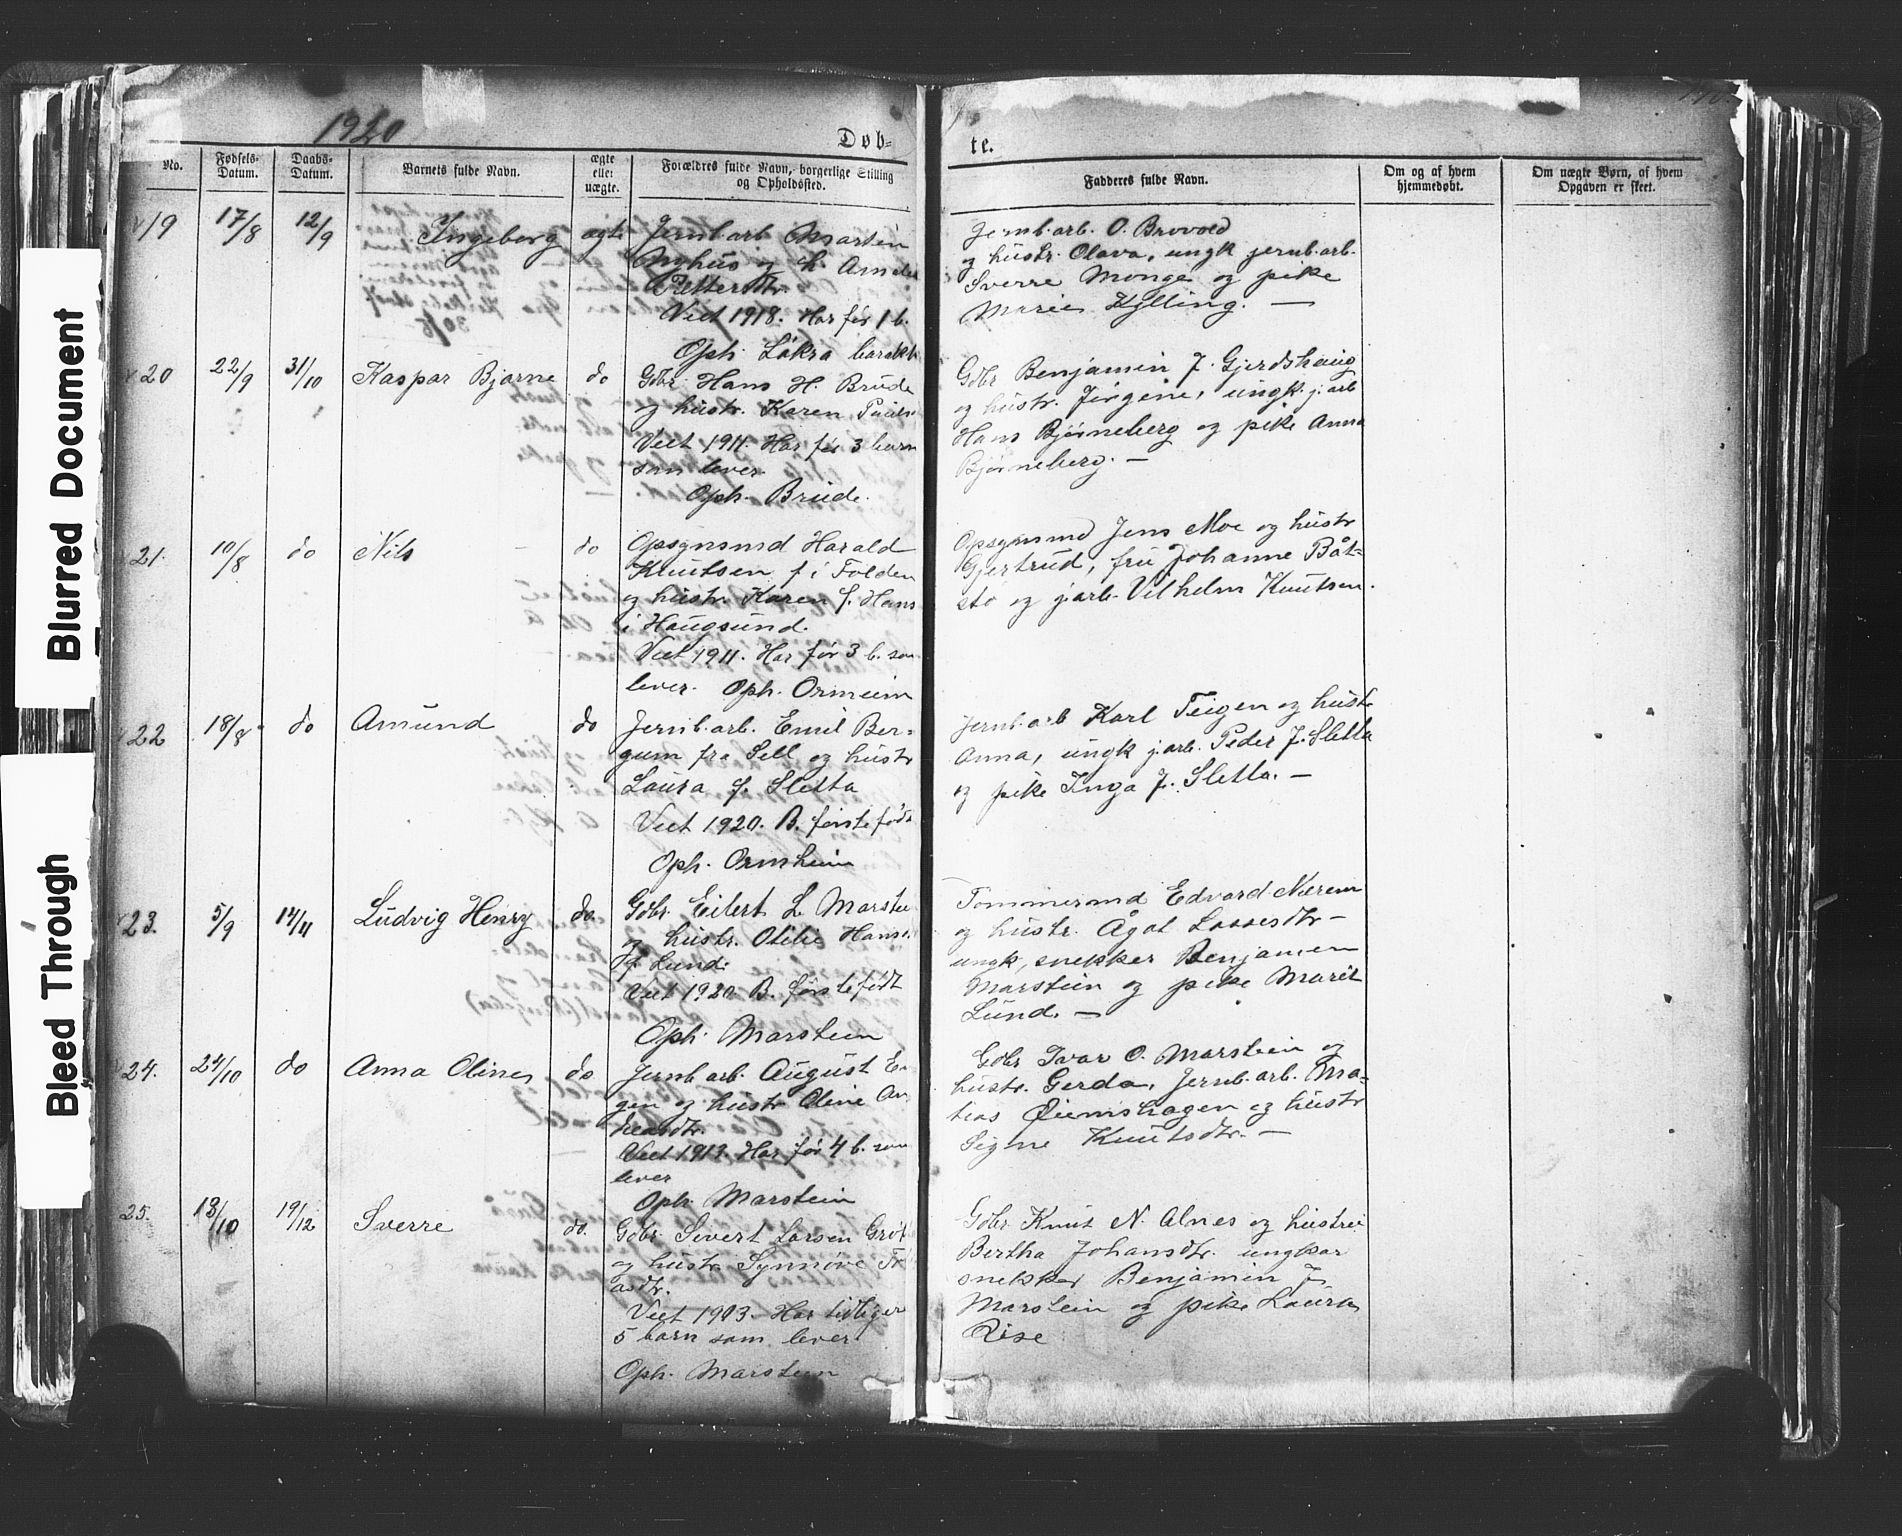 1920
Døb-
te.
No.
Fødsels-
Datum.
Daabs-
Datum.
Barnets fulde Navn.
ægte
eller
uægte.
Forældres fulde Navn, borgerlige Stilling
og Opholdssted.
Fadderes fulde Navn.
Om og af hvem
hjemmedøbt.
Om uægte Børn, af hvem
Opgaven er skeet.
19
17/8
12/9
Ingeborg
ægte
Jernb.arb. Martin
og h. Amalia
Petterdtr.
Viet 1918. Har før 1 b.
Oph. Løkra barakk
Jernb.arb. O. Brovold
og hustr. Olava, ungk jernb.arb.
Sverre Monge og pike
Marie Kylling. —
20
22/9
31/10
Kaspar Bjarne
do
Gbr. Hans H. Brude
og hustr. Karen
Viet 1911. Har før 3 barn
som lever.
Oph. Brude.
Gbr Benjamin J. Gjerdshaug
og hustr. Jørgine, ungk. j.arb
Hans Bjørneberg og pike Anna
Bjørneberg. —
21.
10/8
do
Nils
do
Opsynsmd Harald
Knutsen f. i Folden
og hustr. Karen f. Hans
i Haugsund.
Viet 1911. Har før 3 b. som
lever. Oph. Ormeim
Opsynsmd Jens Moe og hustr
Gjertrud, fru Johanne Båt-
sto og j.arb. Vilhelm Knutsen.
22
18/8
do
Amund
do
Jernb.arb. Emil Ber-
gum fra Sell og hustr
Laura f. Sletta
Viet 1920. B. førstefødt
Oph. Ormheim
Jernb.arb Karl Teigen og hustr
Anna, ungk j.arb. Peder J. Sletta
og pike Inga J. Sletta. —
23.
5/9
14/11
Ludvig Henry
do
Gbr. Eilert L. Marstein
og hustr. Otilie Hans
f. Lund.
Viet 1920 B. førstefødt
Oph. Marstein
Tømmermd Edvard Nerem
og hustr. Ågot Lassesdtr —
ungk, snekker Benjamin
Marstein og pike Marit
Lund. —
24.
24/10
do
Anna Oline
do
Jernb.arb. August En-
gen og hustr Oline An
dreasdtr.
Viet 1913. Har før 4 b. som
lever
Oph. Marstein
Gbr Ivar O. Marstein og
hustr. Gerda, Jernb.arb. Ma-
tias Øiemshagen og hustr
Signe Knutsdtr. —
25.
13/10
19/12
Sverre
do.
Gbr. Sivert Larsen
og hustr. Synnøve
Viet 1903 Har tidligere
5 barn som lever
Oph. Marstein
Gbr Knut N. Alnes og hustru
Bertha Johansdtr. ungkar
snekker Benjamin J.
Marstein og pike Laura
Rise
Blurred Document
Bleed Through